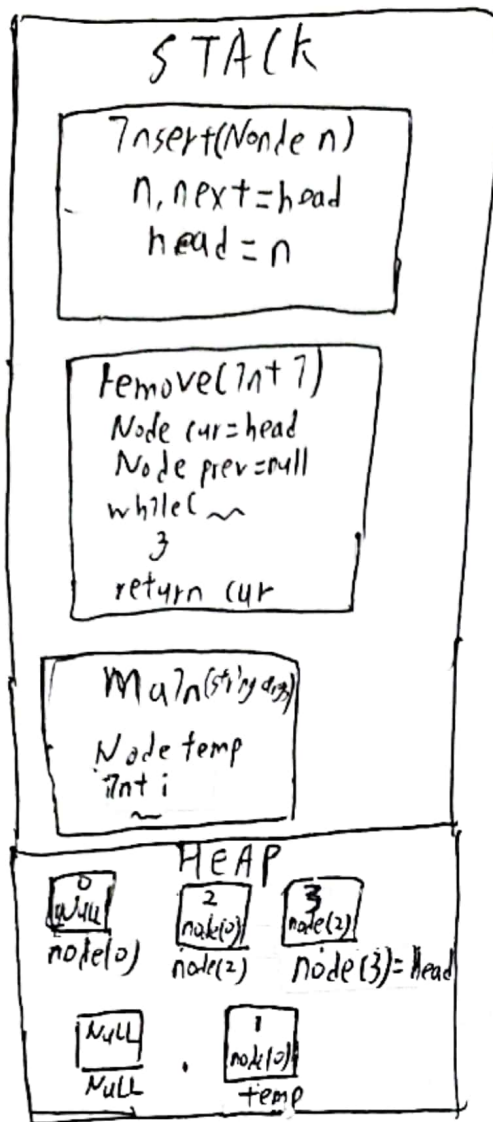 STACK
Insert(Nonde n)
n, next = head
head = n
remove(Int I)
Node cur = head
Node prev = null
while(
}
return cur
Main(string args)
Node temp
Int i
HEAP
0 2 3
NUll node(0) node(2)
node(0) node(2) node(3) = Head
NULL 1
node(0)
NULL temp